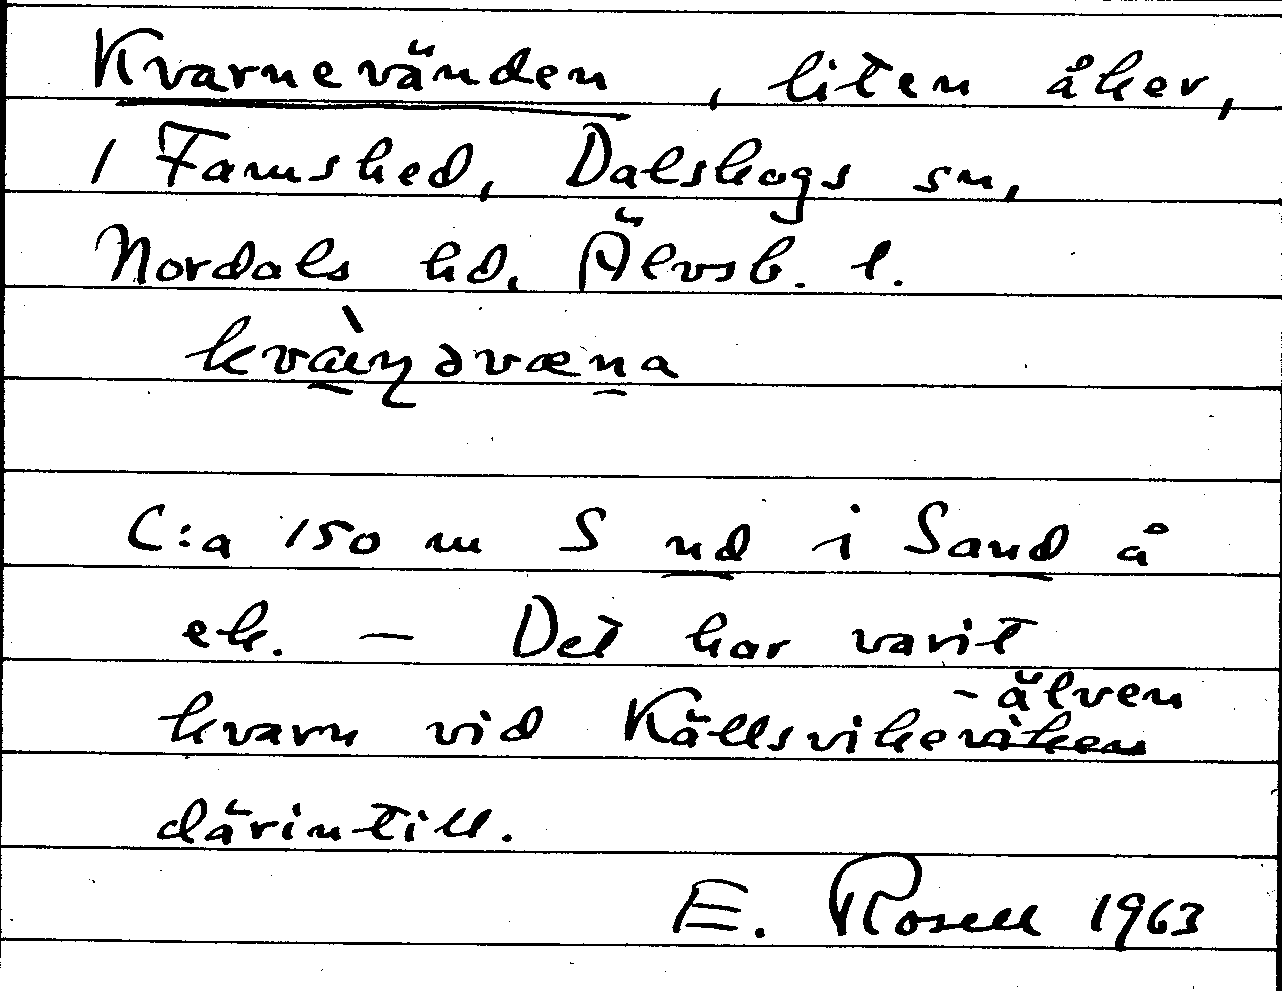 Kvarnevänden, liten åker,
i Famshed, Dalskogs sn,
Nordals hd. Älvsb. l.
C:a 150 m S nd i Sand å
ek. – Det har varit
kvarn vid Källsvikeviken -älven
därintill.
E. Rosell 1963